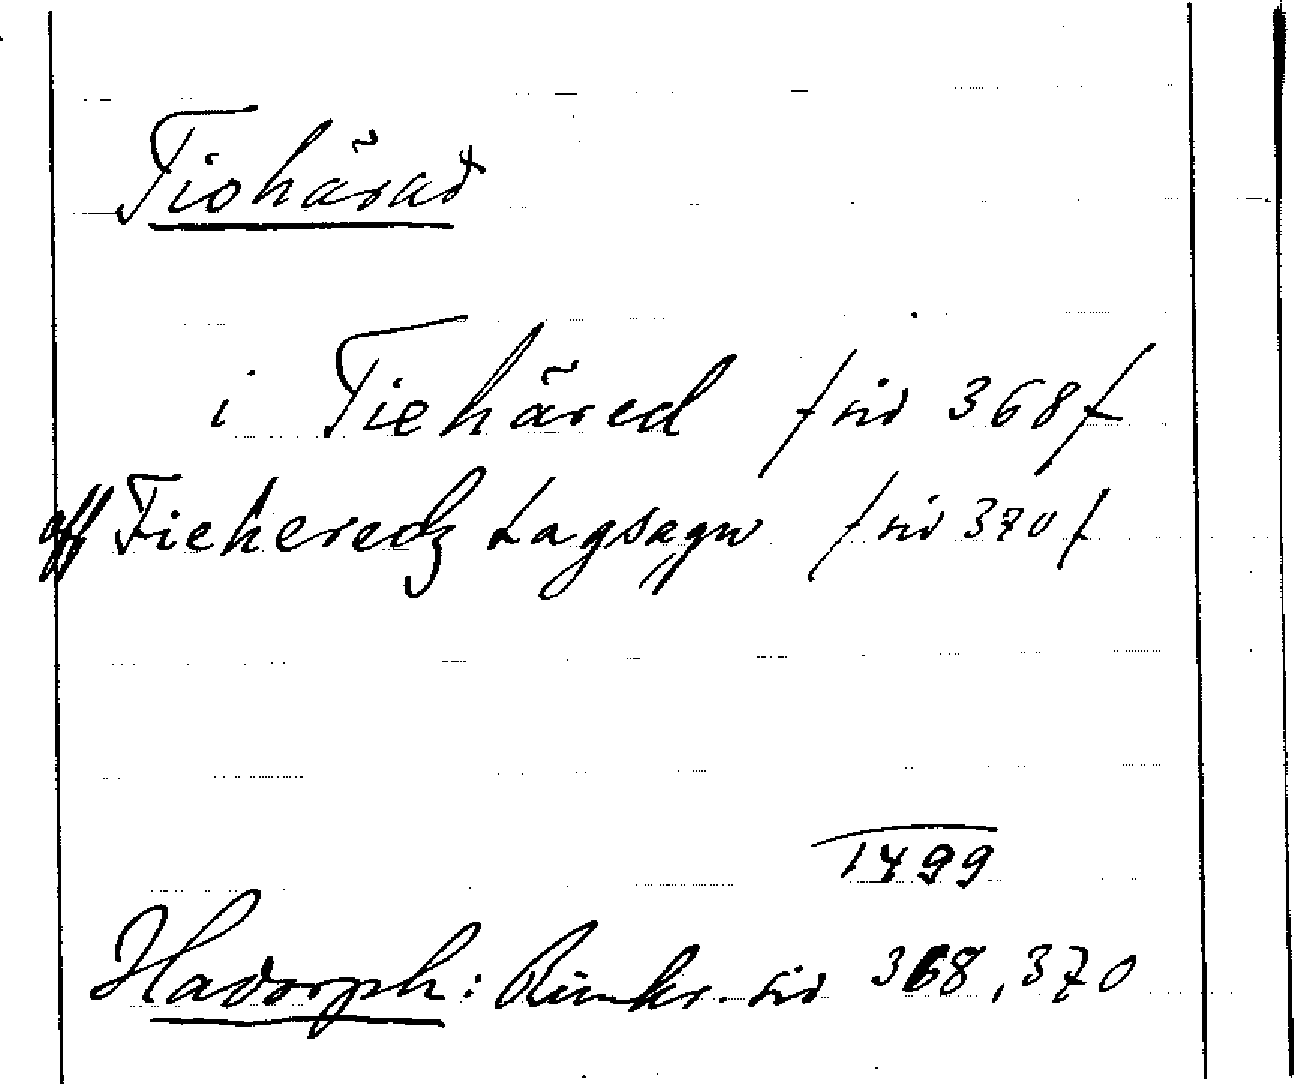 Tiohärad
i Tiehäred /sid 368/
aff Tieheredz Lagsagu /sid 370/
1499
Hadorph: Rimkr. sid 368, 370